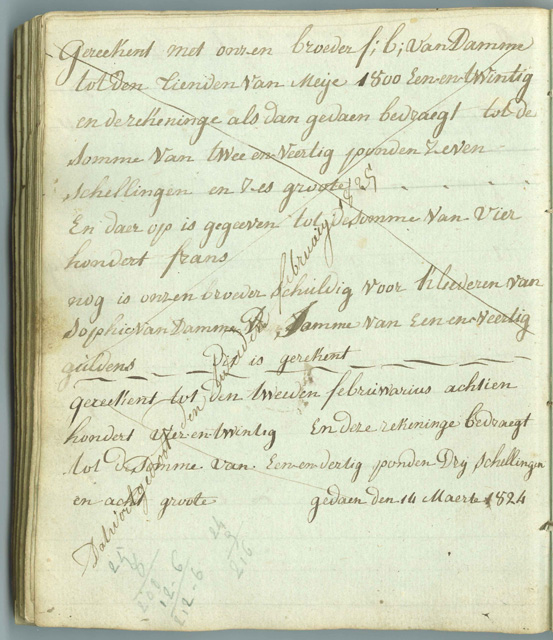 Gereekent met onzen broeder f: b: van Damme
tot den tienden van Meije 1800 Een-en-twintig
en de rekeninge als dan gedaen bedraegt tot de
Somme van twee en veertig ponden zeven
schellingen en zes groote
En daer op is gegeeven tot de Somme van vier
hondert frans
nog is onzen broeder schuldig voor kleederen van
Sophie van Damme De Somme van Een-en-veertig
guldens Dit is gerekent
gereekent tot den tweeden februwarius achtien
hondert vier-en-twintig En deze rekeninge bedraegt
tot de Somme van Een-en-dertig ponden Drij schellingen
en acht groote gedaen den 14 Maerte 1824
den februarij 1825